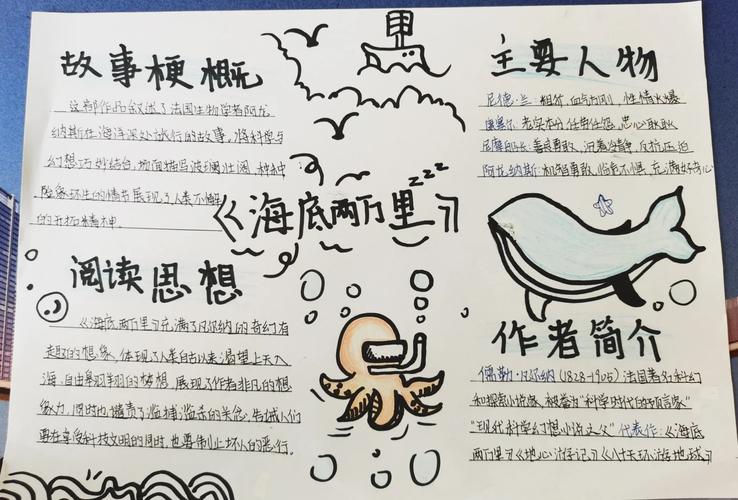 故事梗概
这部作品叙述了法国生物学者阿龙
纳斯在海洋深处旅行的故事,将科学与
幻想巧妙结合,场面描写波澜壮阔,种种
险象环生的情节展现了人类不懈
的开拓精神。
《海底两万里》
zzz
阅读思想
《海底两万里》充满了凡尔纳的奇幻有
趣的想象,体现了人类自古以来渴望上天入
海、自由翱翔的梦想,展现了作者非凡的想
象力,同时也谴责了滥捕、滥杀的
要在享受科技文明的同时,也要制止坏人的恶行。
主要人物
尼德·兰:相 血气方刚 性情火爆
康塞尔:老实本分 任劳任怨,忠心耿耿
尼摩船长:善良勇敢,沉着冷静,反抗压迫
阿龙纳斯:机智勇敢,临危不惧,充满好奇心
作者简介
儒勒·凡尔纳(1828-1905)法国著名科幻
和探险小说家,被誉为“科学时代的预言家”
“现代科学幻想小说之父”代表作:《海底
两万里》《地心游记》《八十天环游地球》